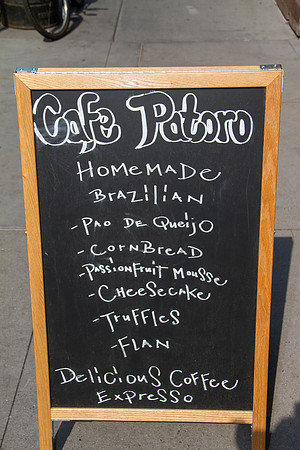 Cafe Patoro
HOMEMADE
BRAZiliAN
-PAO DE QueiJO
-CORNBREAD
-PASSIONFRUIT MOUSSE
-CHEESECAKE
-TRuffles
-FLAN
Delicious Coffee
EXPRESSO